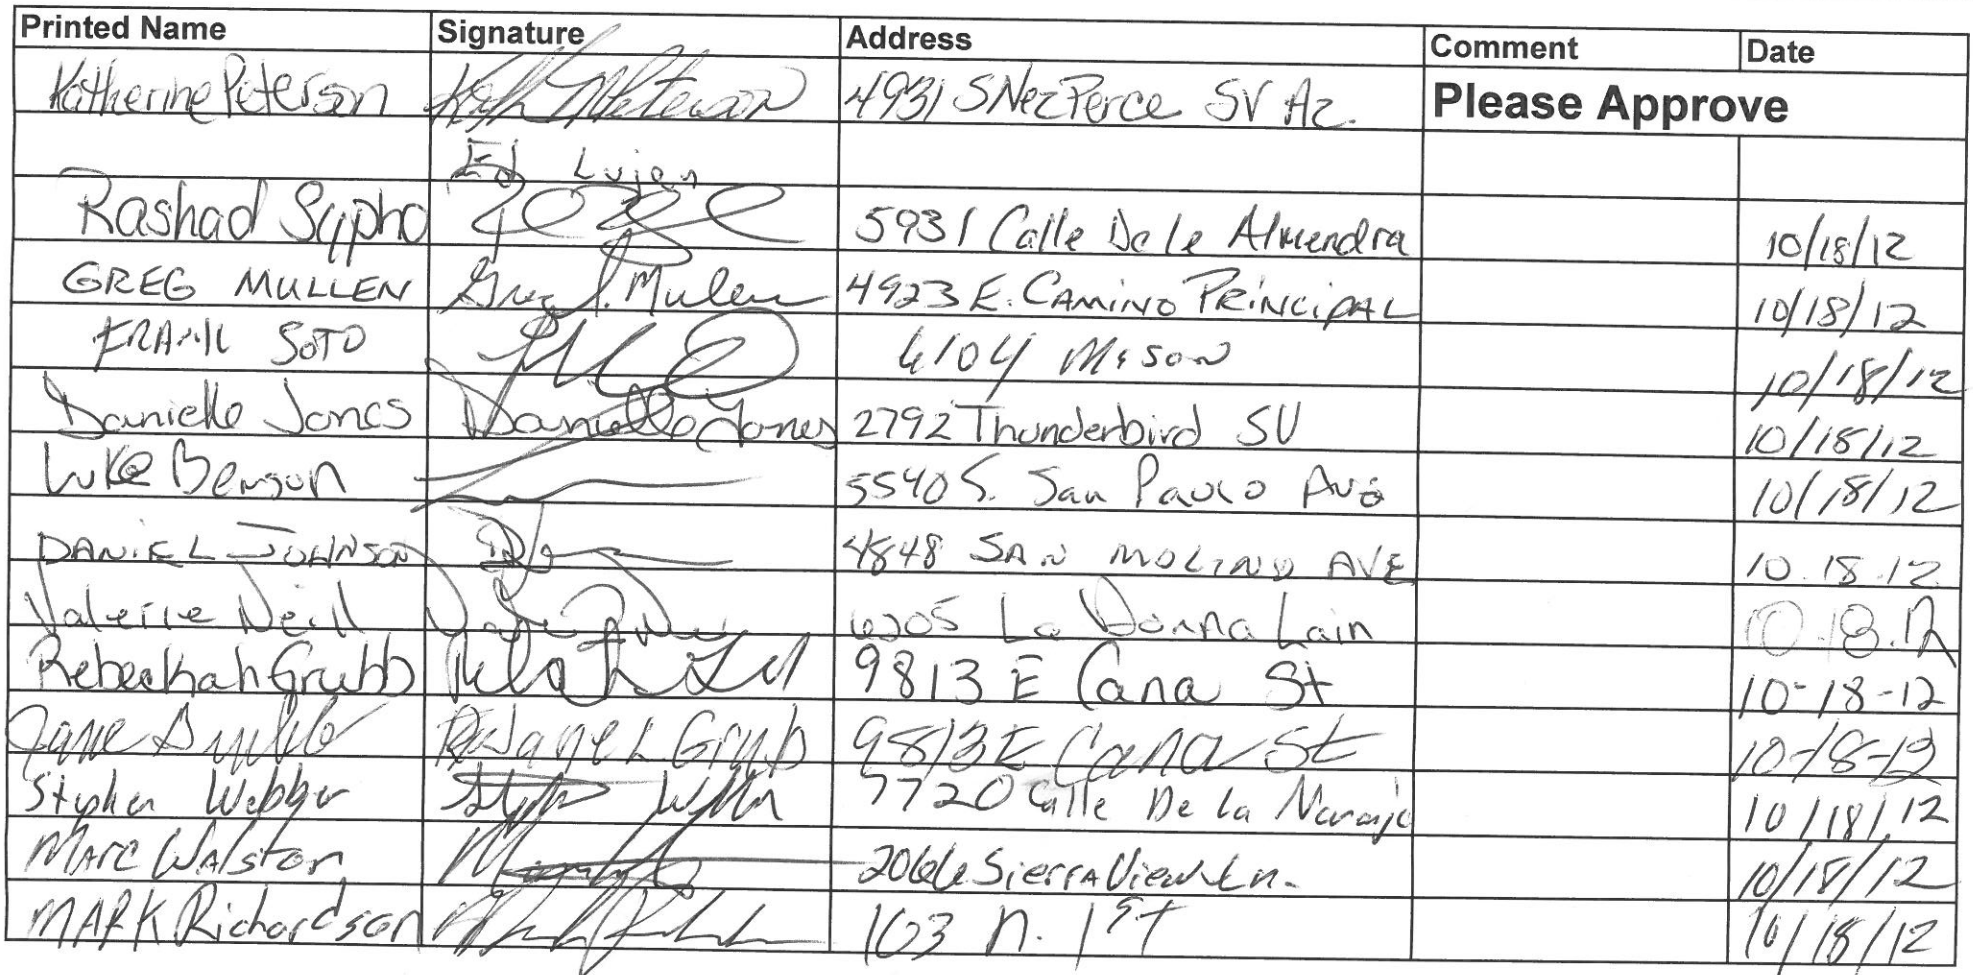 Printed Name Signature Address Comment Date
Katherine Peterson Kath M Peterson 4931 S Nez Perce SV Az. Please Approve
Ed Lujan
Rashad Sypho 5931 Calle De Le Almendra 10/18/12
GREG MULLEN Greg J. Mullen 4923 E. CAMINO PRINCIPAL 10/18/12
FRANK SOTO 6104 Mison 10/18/12
Danielle Jones Danielle Jones 2792 Thunderbird SV 10/18/12
Luke Benson 5540 S. San Paulo Ave 10/18/12
DANIEL JOHNSON 4848 SAN MOLINO AVE 10.18.12
Valerie Neill 6205 La Donna Lain 10.18.12
Rebeckah Grubb 9813 E Cana St 10-18-12
Jane L Grub 9813 E Cana St 10-18-12
Stephen Webber 7720 Calle De La Naranja 10/18/12
MARC WAlston 2066 Sierra View Ln. 10/18/12
MARK Richardson 103 N. 1st 10/18/12